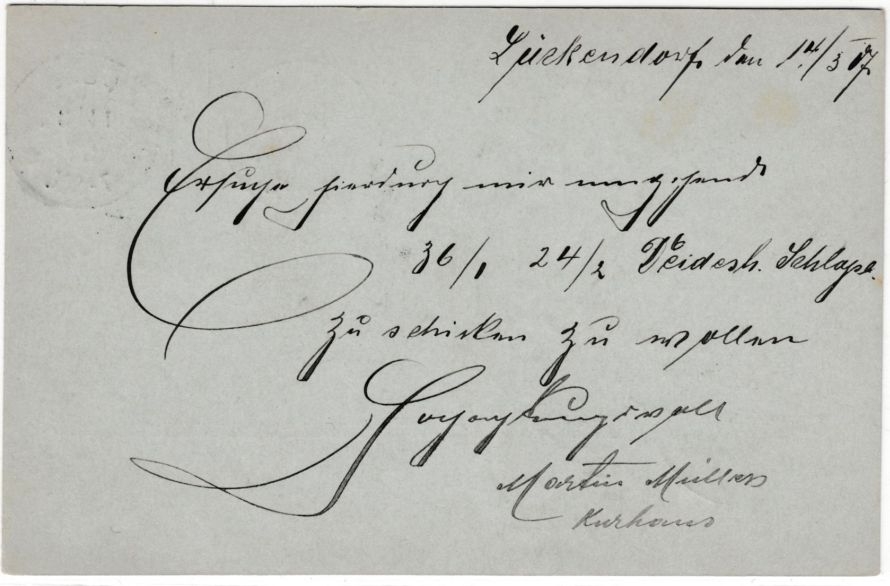 Lückendorf, den 14/3 07.
Ersuche hierdurch mir umgehend
36/1 24/2 Deidesh. Schlap.
zu schicken zu wollen
Hochachtungsvoll
Martin Müller
Kurhaus